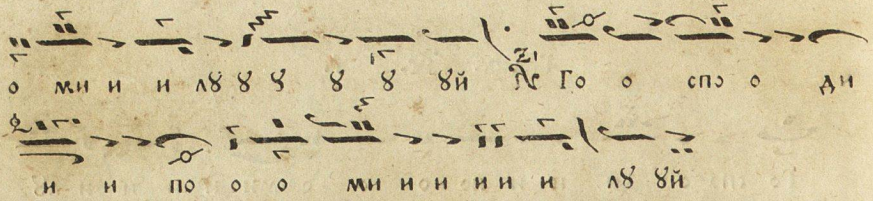 о ми и и лꙋ ꙋ ꙋ ꙋ ꙋ ꙋй Го о спо о ди
и и по о о ми и и и и и лꙋ ꙋй